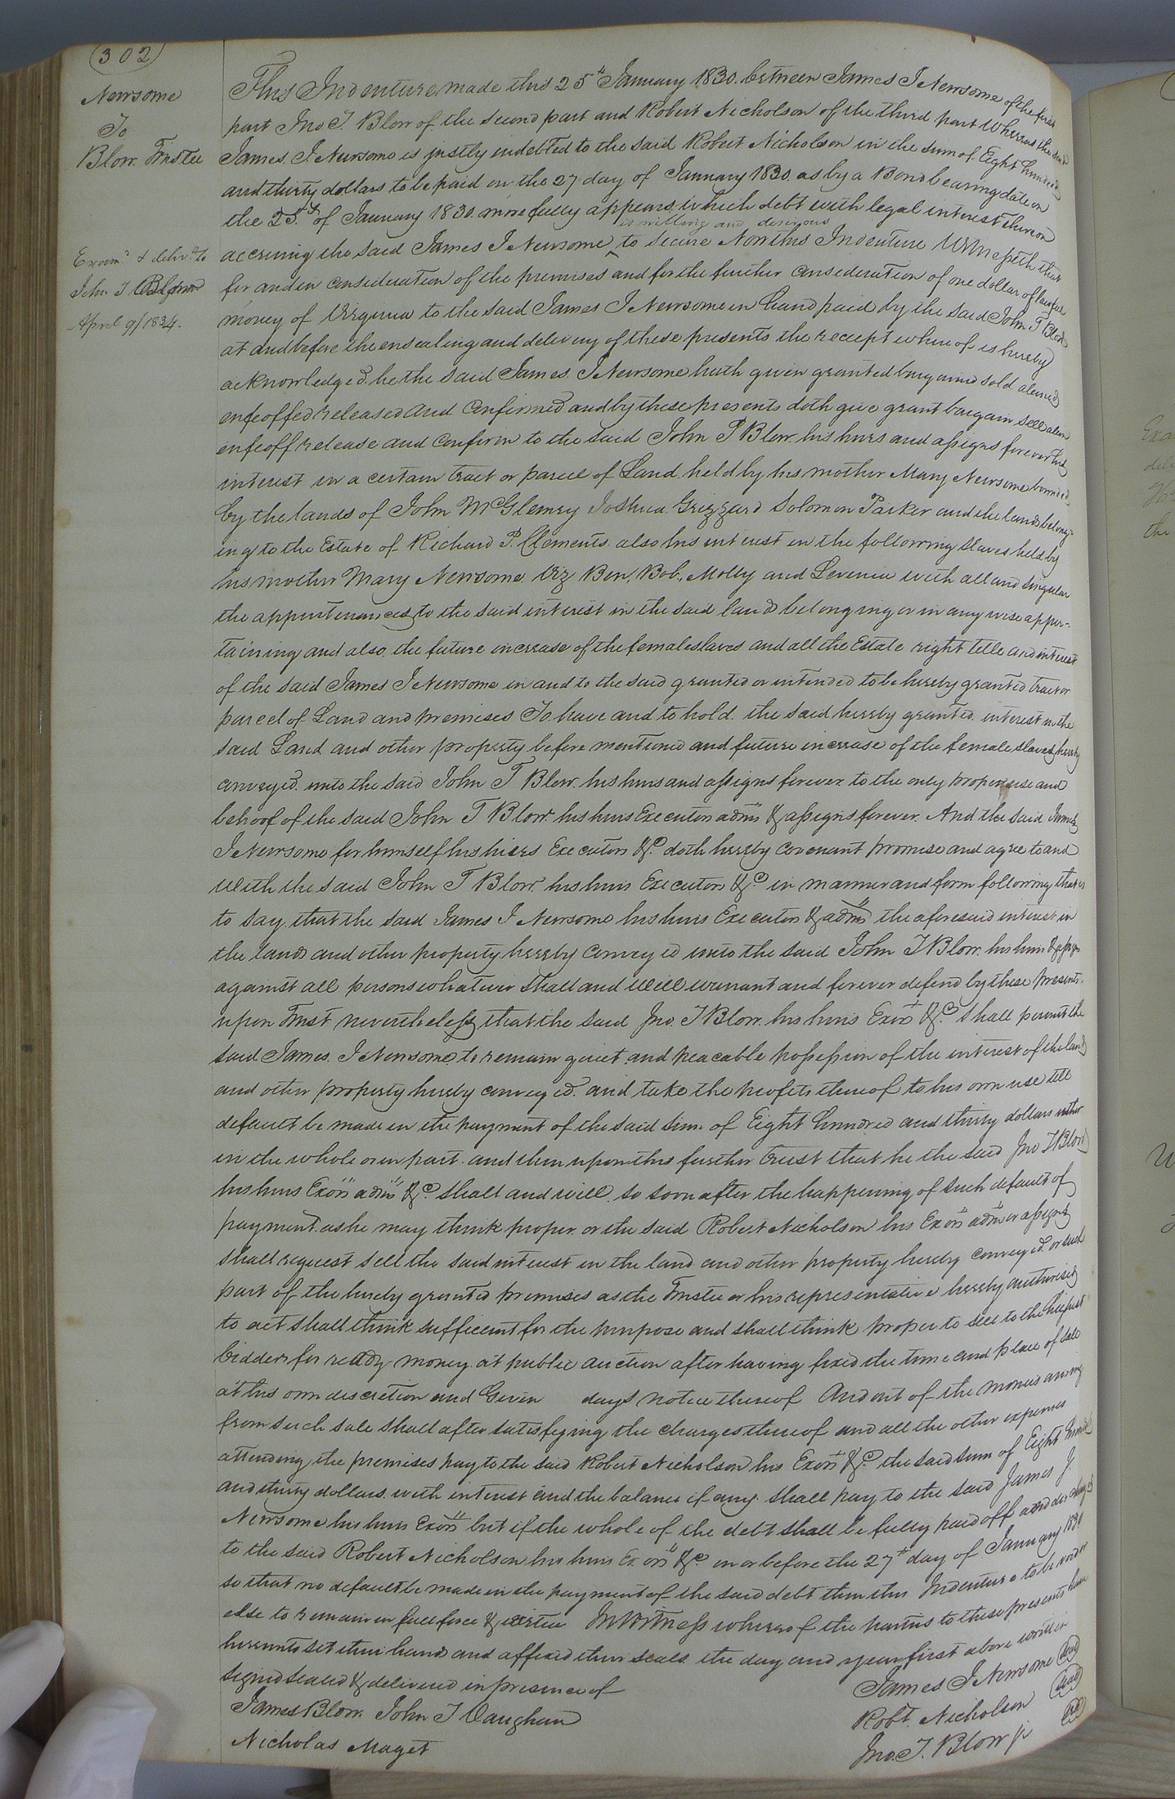 302
Newsome
To
Blow Trustee
Exam.d & deliv.d to
John T. Blow
April 9/1834.
This Indenture made this 25th January 1830. between James J Newsome of the first
part Jno T. Blow of the second part and Robert Nicholson of the third part Whereas the said
James J Newsome is justly indebted to the said Robert Nicholson in the sum of Eight hundred
and thirty dollars to be paid on the 27 day of January 1830 as by a Bond bearing date on
the 25th of January 1830 more fully appears, which debt with legal interest thereon
is willing and desirous
accruing the said James J Newsome ^ to secure Now this Indenture Witnesseth that
for and in consideration of the premises and for the further consideration of one dollar of lawful
money of Virginia to the said James J Newsome in hand paid by the said John T Blow
at and before the ensealing and delivery of these presents the receipt whereof is hereby
acknowledged, he the said James J Newsome hath given granted bargained sold aliened
enfeoffed released and confirmed and by these presents doth give grant bargain sell alien
enfeoff release and confirm to the said John T Blow his heirs and assigns forever his
interest in a certain tract or parcel of Land held by his mother Mary Newsome bounded
by the lands of John McGlemry Joshua Grizzard Solomon Parker and the lands belong-
ing to the Estate of Richard P. Clements also his interest in the following slaves held by
his mother Mary Newsome Viz Ben, Bob, Molly and Levenia with all and singular
the appurtenances to the said interest in the said land belonging or in any wise apper-
taining and also the future increase of the female slaves and all the Estate right title and interest
of the said James J Newsome in and to the said granted or intended to be hereby granted tract or
parcel of Land and premises To have and to hold the said hereby granted interest in the
said Land and other property before mentioned and future increase of the female slaves hereby
conveyed unto the said John T Blow his heirs and assigns forever to the only proper use and
behoof of the said John T Blow his heirs Executors adms & assigns forever. And the said James
J Newsome for himself his heirs Executors &c. doth hereby covenant promise and agree to and
with the said John T Blow his heirs Executors &c in manner and form following that is
to say, that the said James J Newsome his heirs Executors & adms the aforesaid interest in
the lands and other property hereby conveyed unto the said John T Blow his heirs & assigns
against all persons whatever shall and will warrant and forever defend by these presents.
upon Trust nevertheless that the said Jno. T Blow his heirs Exors &c. shall permit the
said James J Newsome to remain quiet and peacable possession of the interest of the land
and other property hereby conveyed and take the profits thereof to his own use till
default be made in the payment of the said sum of Eight hundred and thirty dollars either
in the whole or in part and then upon this further trust that he the said Jno T Blow
his heirs Exors adms &c. shall and will so soon after the happening of such default of
payment as he may think proper or the said Robert Nicholson his Exors adms or assigns
shall request sell the said interest in the land and other property hereby conveyed or such
part of the hereby granted premises as the Trustee or his representative hereby authorised
to act shall think sufficient for the purpose and shall think proper to sell to the highest
bidder for ready money at public auction after having fixed the time and place of sale
at his own discretion and Given days notice thereof And out of the monies arising
from such sale shall after satisfying the charges thereof and all the other expenses
attending the premises pay to the said Robert Nicholson his Exors &c. the said sum of Eight hundred
and thirty dollars with interest and the balance if any shall pay to the said James J.
Newsome his heirs Exors but if the whole of the debt shall be fully paid off and discharged
to the said Robert Nicholson his heirs Exors &c. on or before the 27th day of January 1830
so that no default be made in the payment of the said debt then this Indenture to be void or
else to remain in full force & virtue In Witness whereof the parties to these presents have
hereunto set their hands and affixed their seals the day and year first above written
signed sealed & delivered in presence of
James J Newsome seal
James Blow John T Vaughan
Robt. Nicholson seal
Nicholas Maget
Jno. T. Blow jr seal